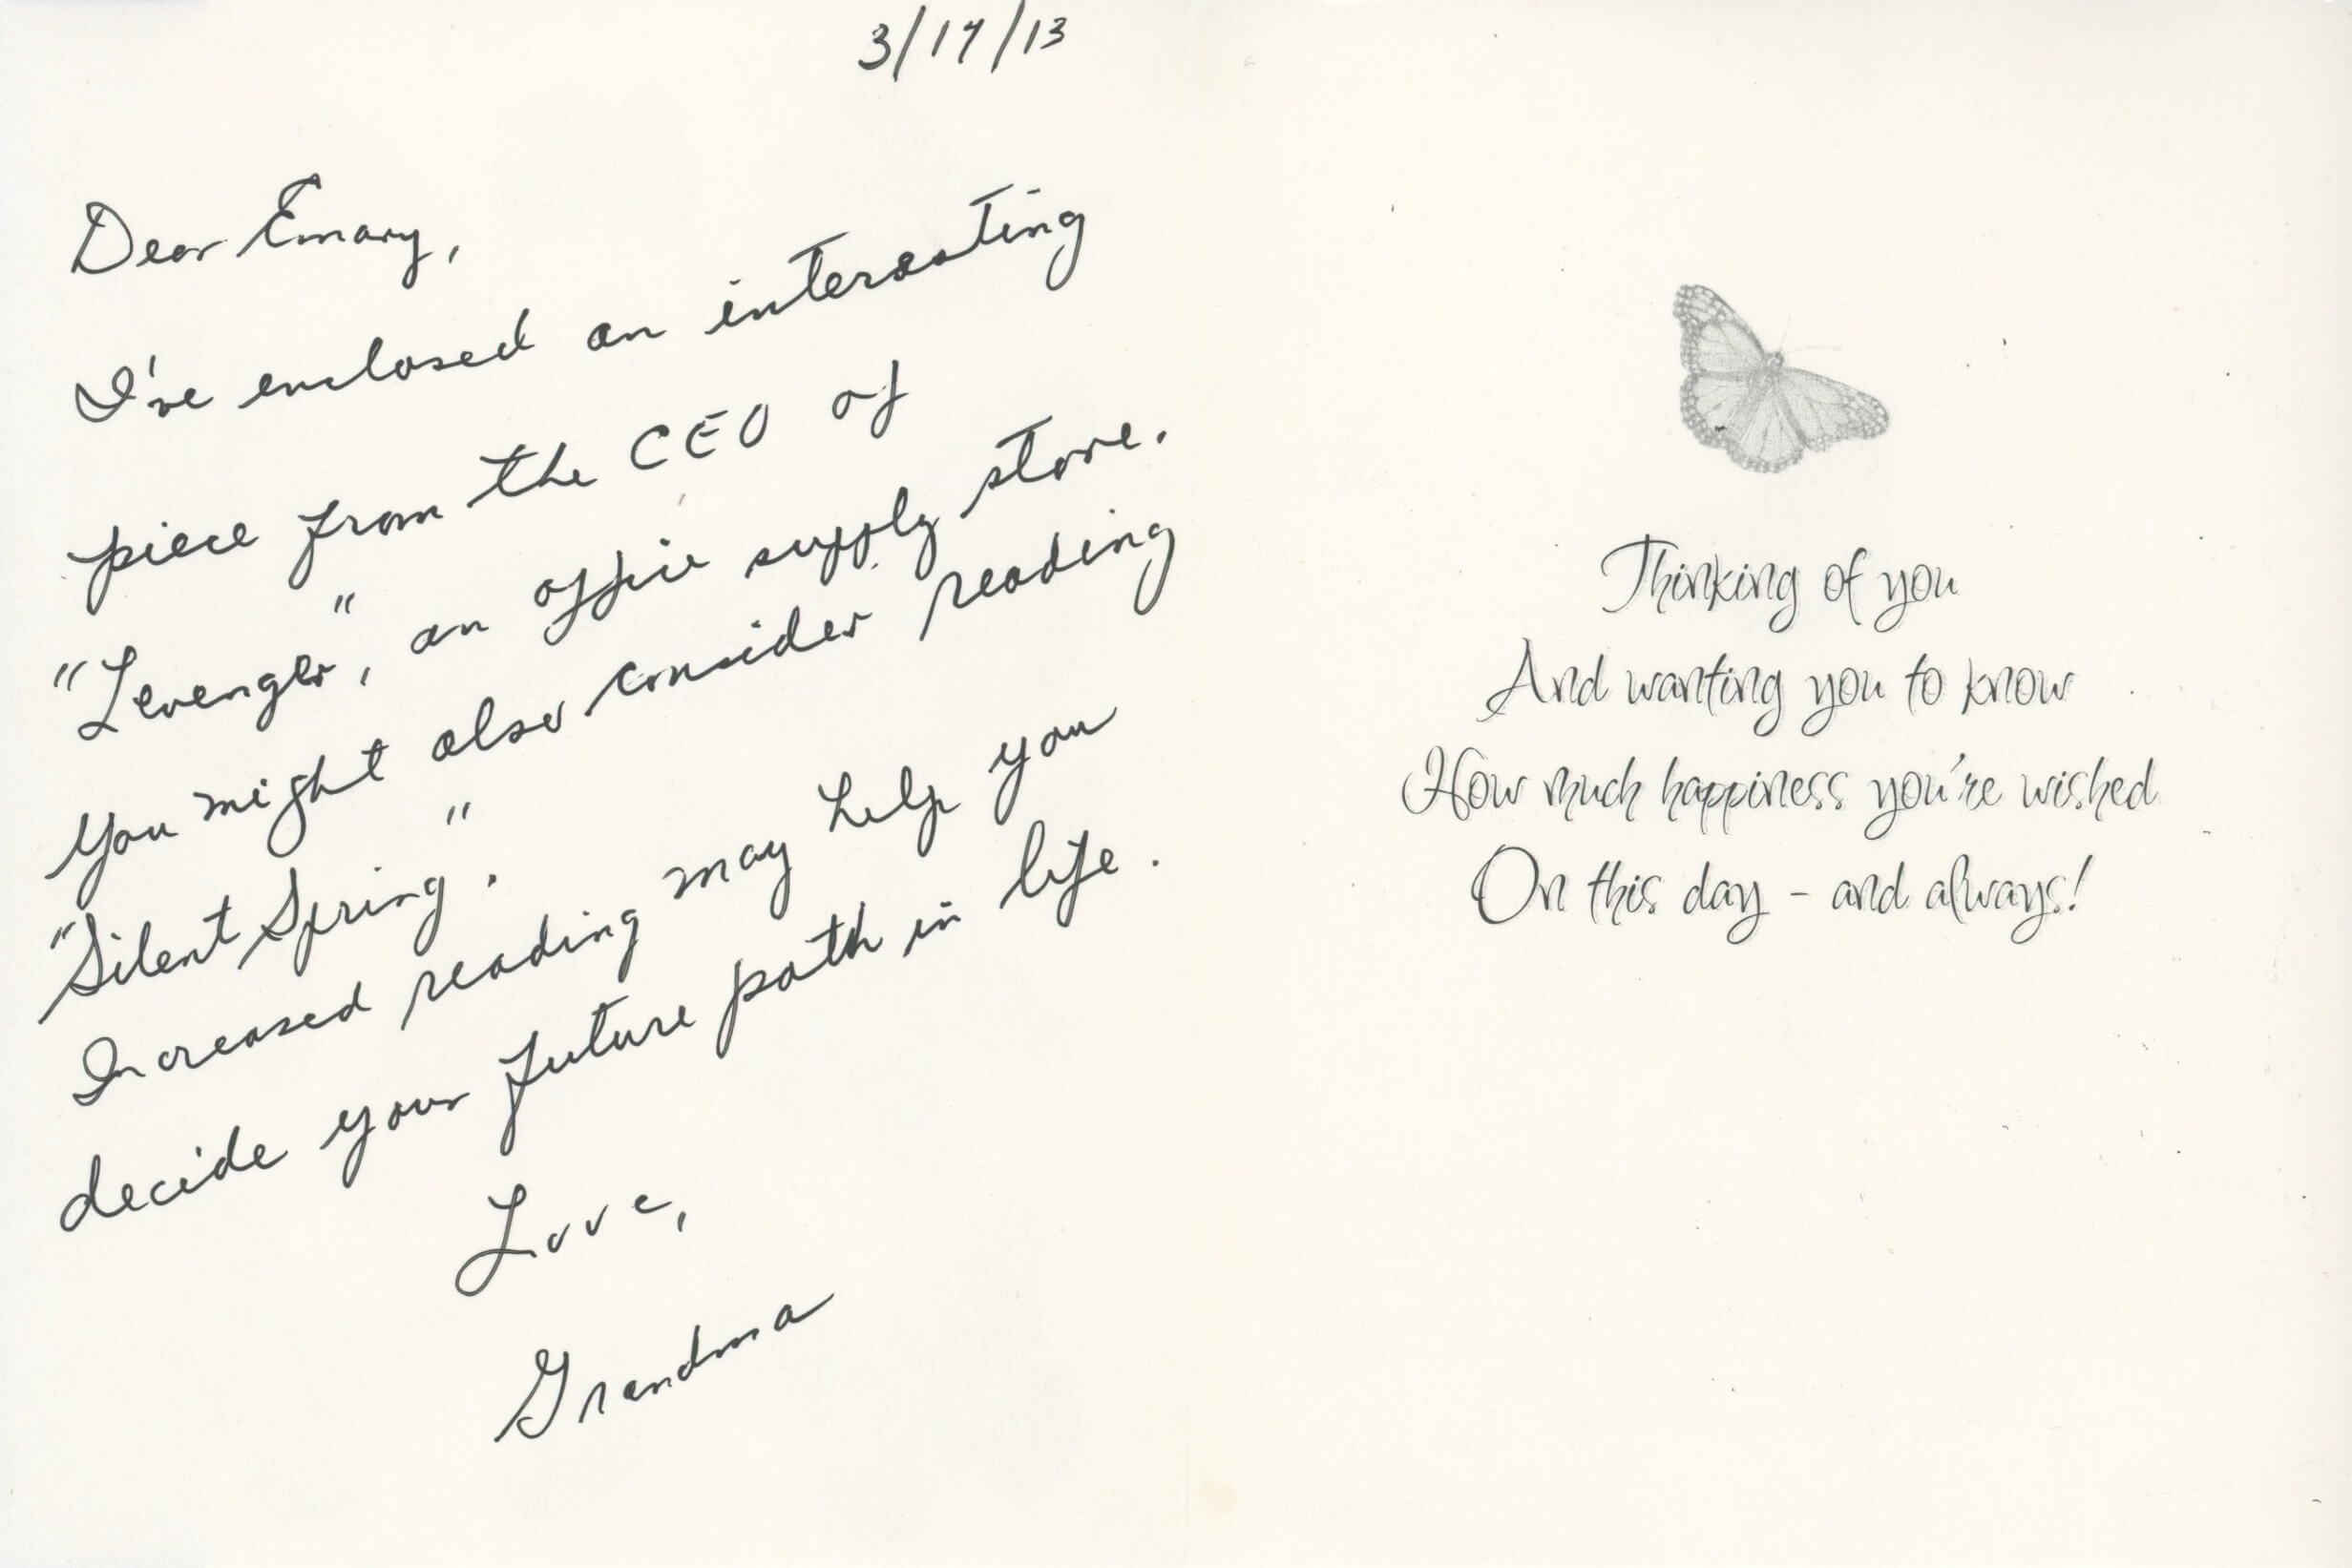 3/17/13
Dear Emary,
I've enclosed an interesting
piece from the CEO of
"Levenger", an office supply store.
You might also consider reading
"Silent Spring".
Increased reading may help you
decide your future path in life.
Love,
Grandma
Thinking of you
And wanting you to know
How much happiness you're wished
On this day - and always!